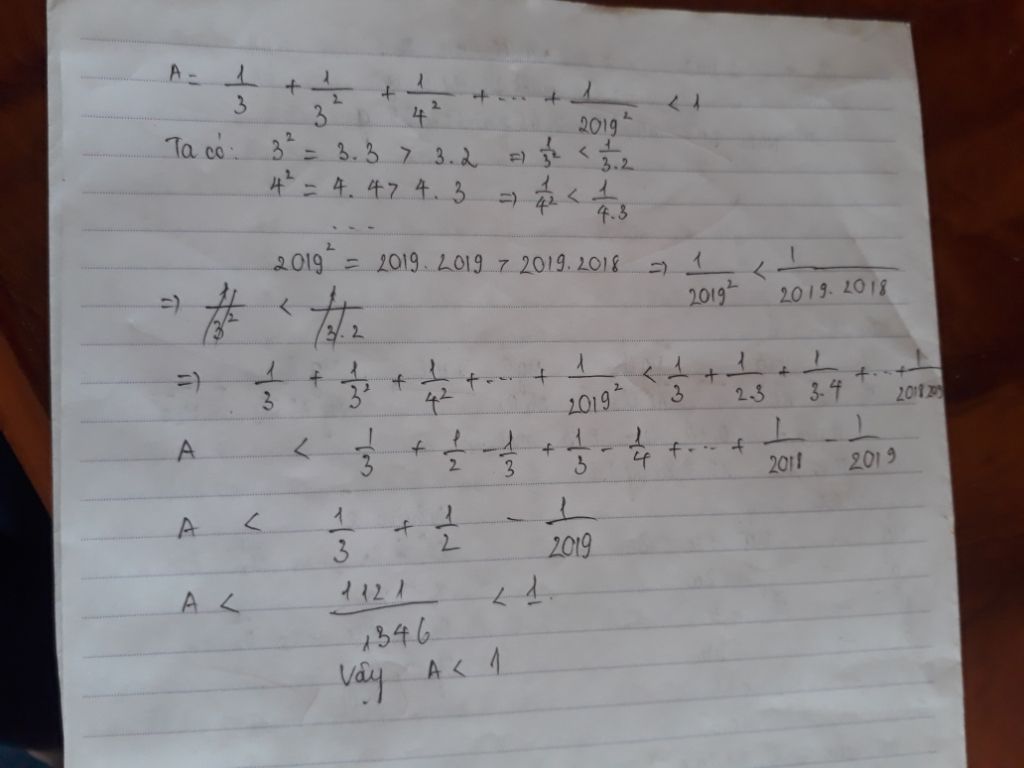 A = 1/3 + 1/3² + 1/4² + ... + 1/2019² < 1
Ta có: 3² = 3.3 > 3.2 => 1/3² < 1/3.2
4² = 4.4 > 4.3 => 1/4² < 1/4.3
...
2019² = 2019.2019 > 2019.2018 => 1/2019² < 1/2019.2018
=> 1/3² < 1/3.2
=> 1/3 + 1/3² + 1/4² + ... + 1/2019² < 1/3 + 1/2.3 + 1/3.4 + ... + 1/
A < 1/3 + 1/2 - 1/3 + 1/3 - 1/4 + ... + 1/2018 - 1/2019
A < 1/3 + 1/2 - 1/2019
A < 1121/1346 < 1.
Vậy A < 1